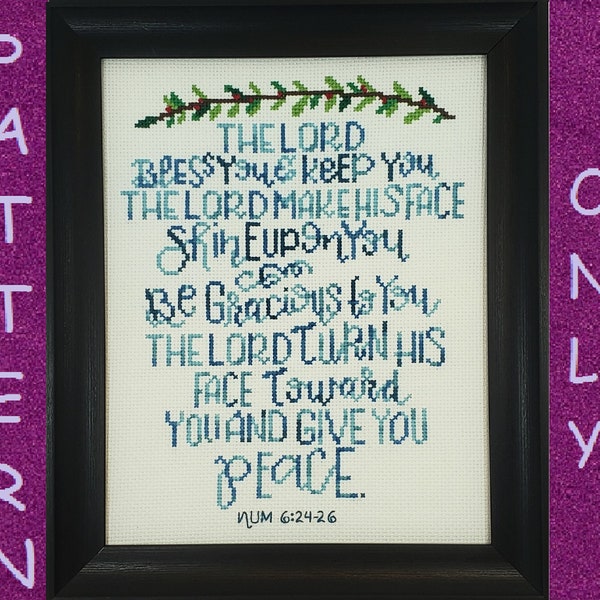 PATTERN
THE LORD
BLESS YOU & KEEP YOU
THE LORD MAKE HIS FACE
ShinE upOn YOU
&
Be Gracious to YOU
THE LORD TURN HIS
FACE Toward
YOU AND GIVE YOU
PEACE.
NUM 6:24-26
ONLY